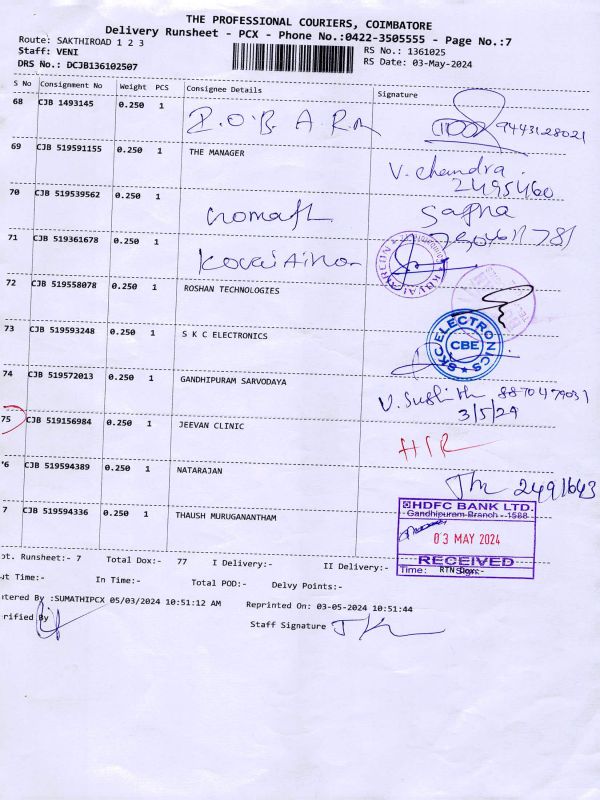 THE PROFESSIONAL COURIERS, COIMBATORE
Delivery Runsheet - PCX - Phone No.:0422-3505555 - Page No.:7
Route: SAKTHIROAD 1 2 3
Staff: VENI RS No.: 1361025
DRS No.: DCJB136102507 RS Date: 03-May-2024
S No Consignment No Weight PCS Consignee Details Signature
68 CJB 1493145 0.250 1 9443128021
69 CJB 519591155 0.250 1 THE MANAGER V. Chandra. 2495460
70 CJB 519539562 0.250 1
71 CJB 519361678 0.250 1
72 CJB 519558078 0.250 1 ROSHAN TECHNOLOGIES
73 CJB 519593248 0.250 1 S K C ELECTRONICS SKC ELECTRONICS CBE
74 CJB 519572013 0.250 1 GANDHIPURAM SARVODAYA
3/5/24
75 CJB 519156984 0.250 1 JEEVAN CLINIC
'6 CJB 519594389 0.250 1 NATARAJAN 2491643
7 CJB 519594336 0.250 1 THAUSH MURUGANANTHAM
HDFC BANK LTD.
Gandhipuram Branch - 1588
03 MAY 2024
RECEIVED
Time:
ot. Runsheet:- 7 Total Dox:- 77 I Delivery:- II Delivery:- RTN Dox:-
ut Time:- In Time:- Total POD:- Delvy Points:-
ntered By :SUMATHIPCX 05/03/2024 10:51:12 AM Reprinted On: 03-05-2024 10:51:44
erified By
Staff Signature